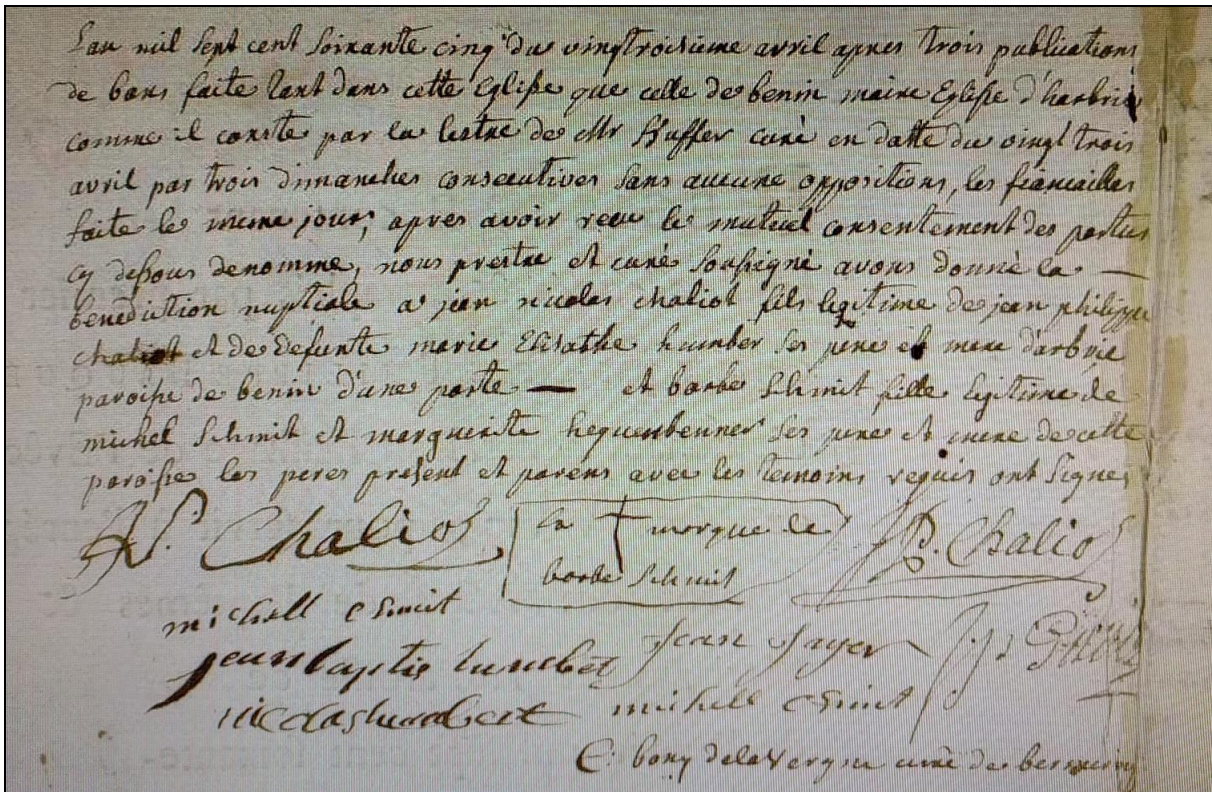 L'an mil sept cent soixante cinq du vingtroisieme avril apres trois publications
de bans faite tant dans cette Eglise que celle de benin maire Eglise d'harbrie
comme il conste par la lestre de Mr Huffer curé en datte du vingt trois
avril par trois dimanches consecutives sans aucune oppositions, les fiancailles
faite le meme jour, apres avoir recu le mutuel consentement des parties
cy dessous denomme, nous prestre et curé soussigné avons donné la —
benediction nuptiale a jean nicolas chaliot fils legitime de jean philippe
chaliot et de defunte marie Elisathe humber ses pere et mere d'arbrie
paroisse de benin d'une parte — et barbe schmit fille legitime de
michel schmit et marguerite hequenbenner ses pere et mere de cette
paroisse les peres present et parens avec les temoins requis ont signes
N. Chaliot la + marque de P. Chaliot
barbe schmit
michell chmit
jean baptis humbert jean jayer
nicolas humbert michell chmit
C: bony delavergne curé de